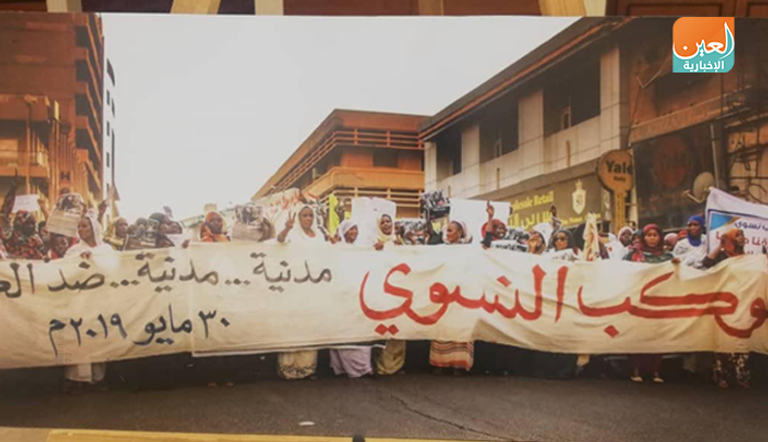 العين
الإخبارية
وكب النسوي
مدنية... مدنية... ضد الع
٣٠ مايو ٢٠١٩م
Yale
Wholesale Retail
نسوي